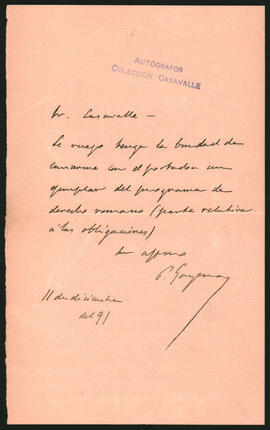 AUTÓGRAFOS
COLECCIÓN CASAVALLE
Sr. Casavalle —
Le ruego tenga la bondad de
enviarme con el portador un
ejemplar del programa de
derecho romano (parte relativa
á las obligaciones)
su affmo
11 de diciembre
del 91